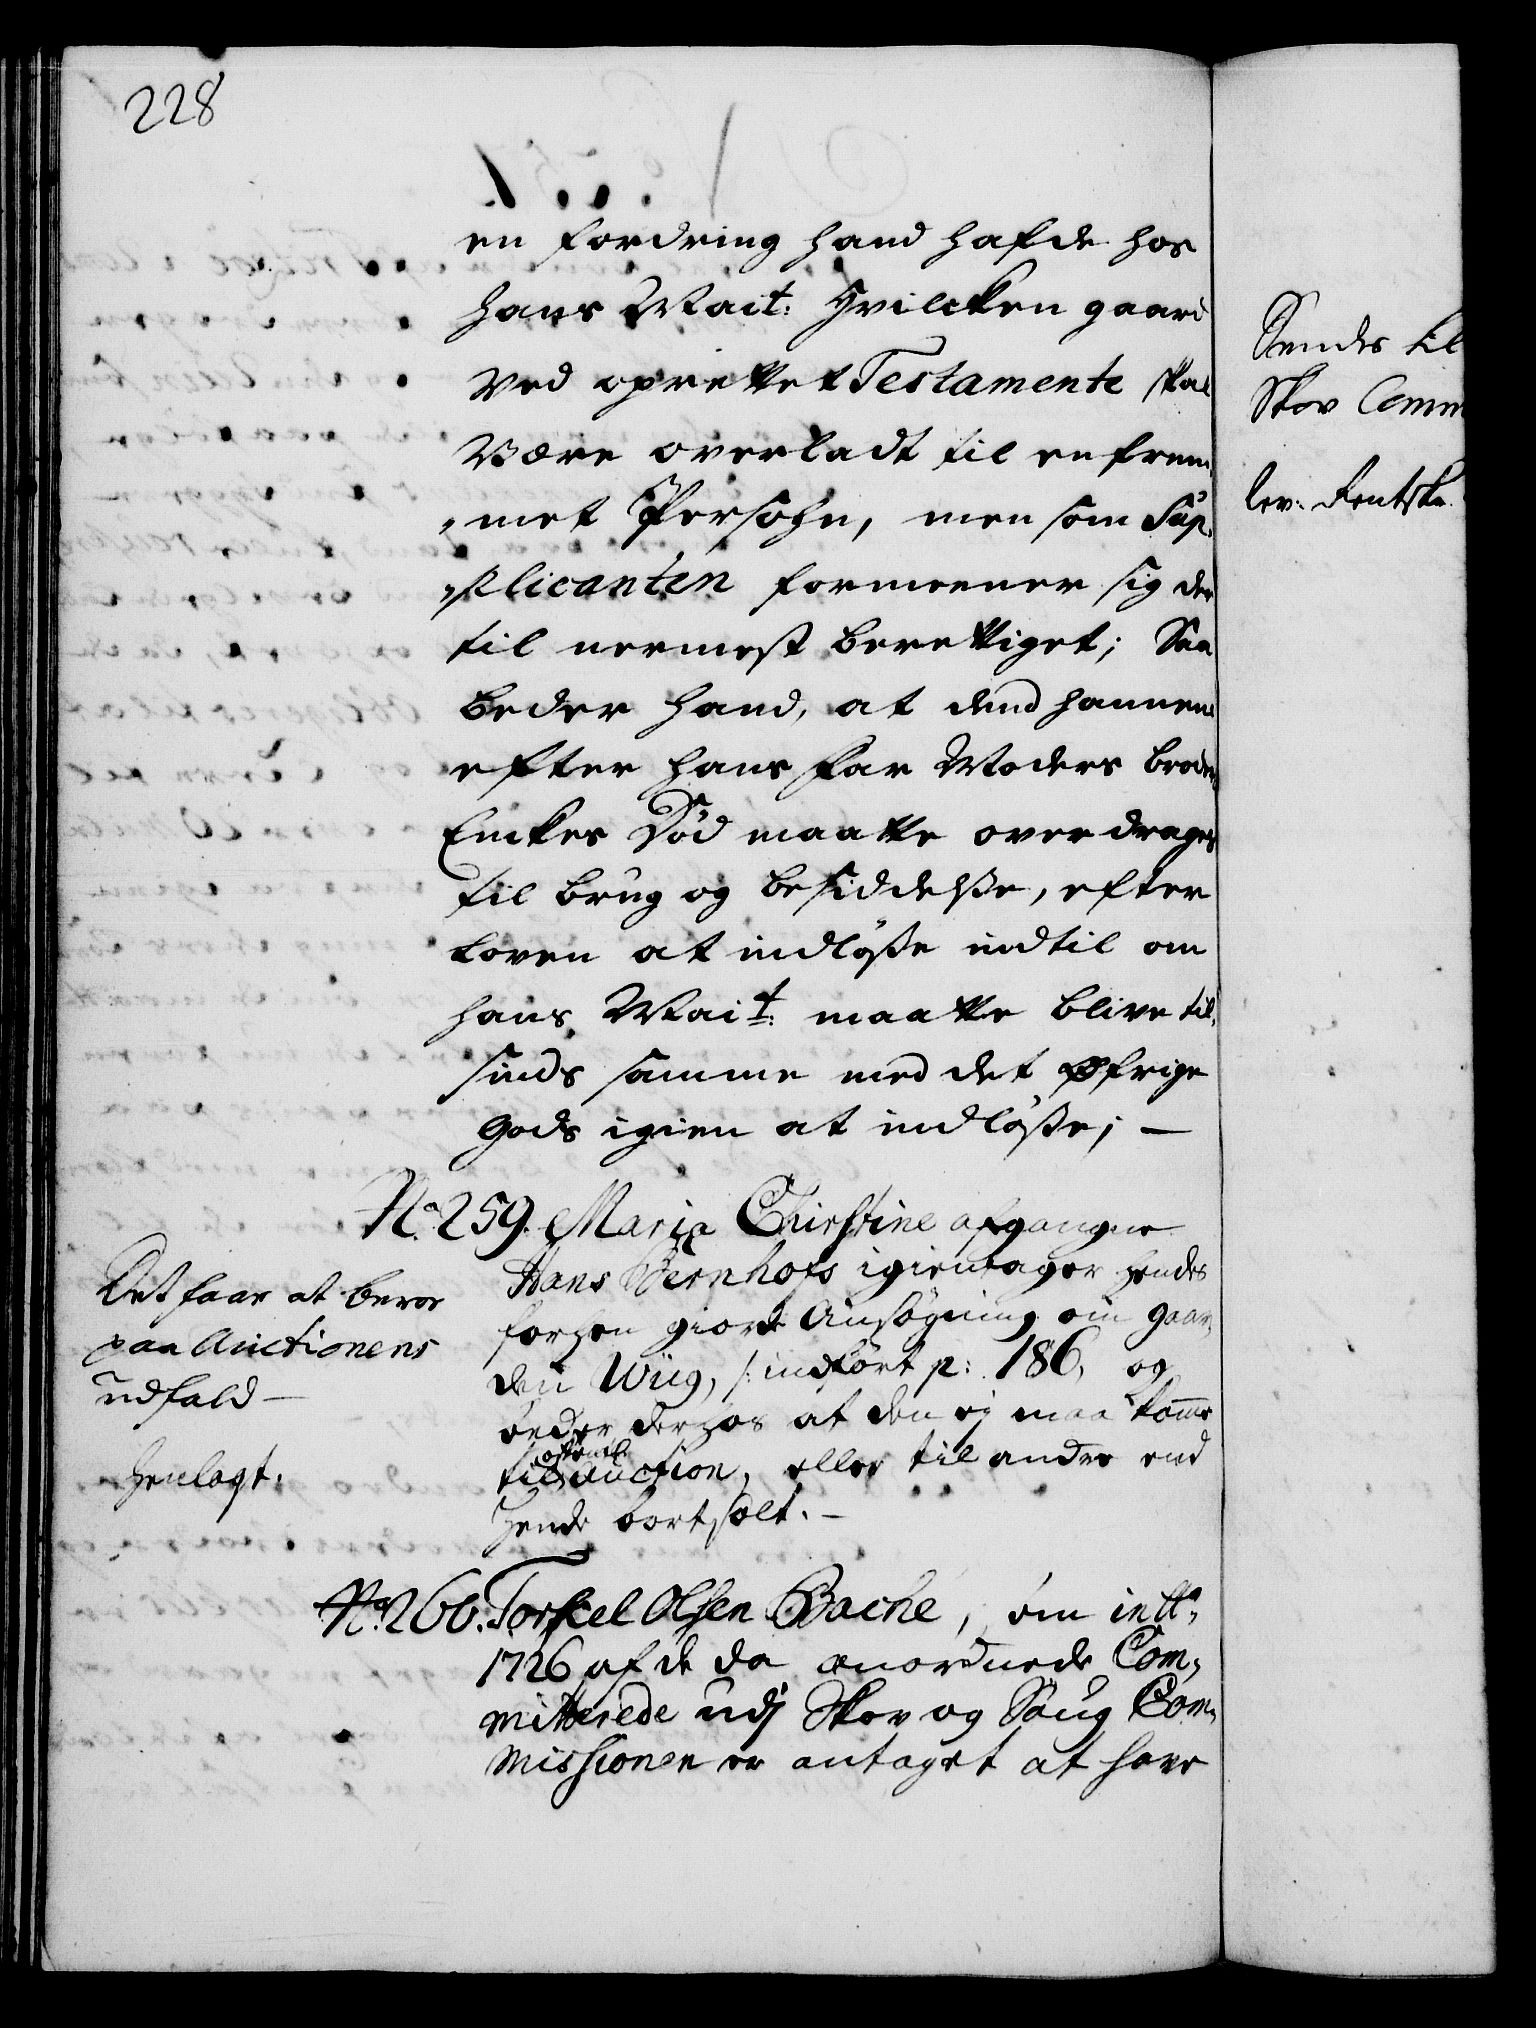 228
en fordring hand hafde hos
hans Mait: Hvilcken gaard
ved oprettet Testamente skal
være overladt til en frem,
,met Persohn, men som Sup,
,plicanten formeener sig der
til nermest berettiget; Saa
beder hand, at dend hannem
efter hans Far Moders broder
Enckes Død maatte overdrages
til brug og besiddelße, efter
loven at indløße indtil om
hans Mait: maatte blive til,
sinds samme med det øfrige
Gods igien at indløße; —
No. 259. Maria Christine afgangne
Hans Bernhofs igientager hendes
forhen giorde Ansøgning om gaar,
den Wiig, /: indført p: 186, og
beder derhos at den ej maa komme
til auction, eller til andre end
Hende bortsolt. —
Det faar at beroe
paa Auctionens
udfald —
Henlagt.
No. 260. Torkel Olsen Bache, som in Ao,
1726 af de da anordnede Com,
mitterede udj Skov og Saug Com,
missionen er antaget at have
Sendes til
Skov Comm
lev: Rentsk.